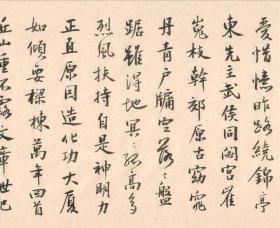 愛惜憶昨路繞錦亭
東先主武侯同閟宮崔
嵬枝幹郊原古窈窕
丹青戶牖空落〻盤
踞雖得地冥〻孤高多
烈風扶持自是神明力
正直原因造化功大廈
如傾要樑棟萬牛回首
丘山重不露文章世已